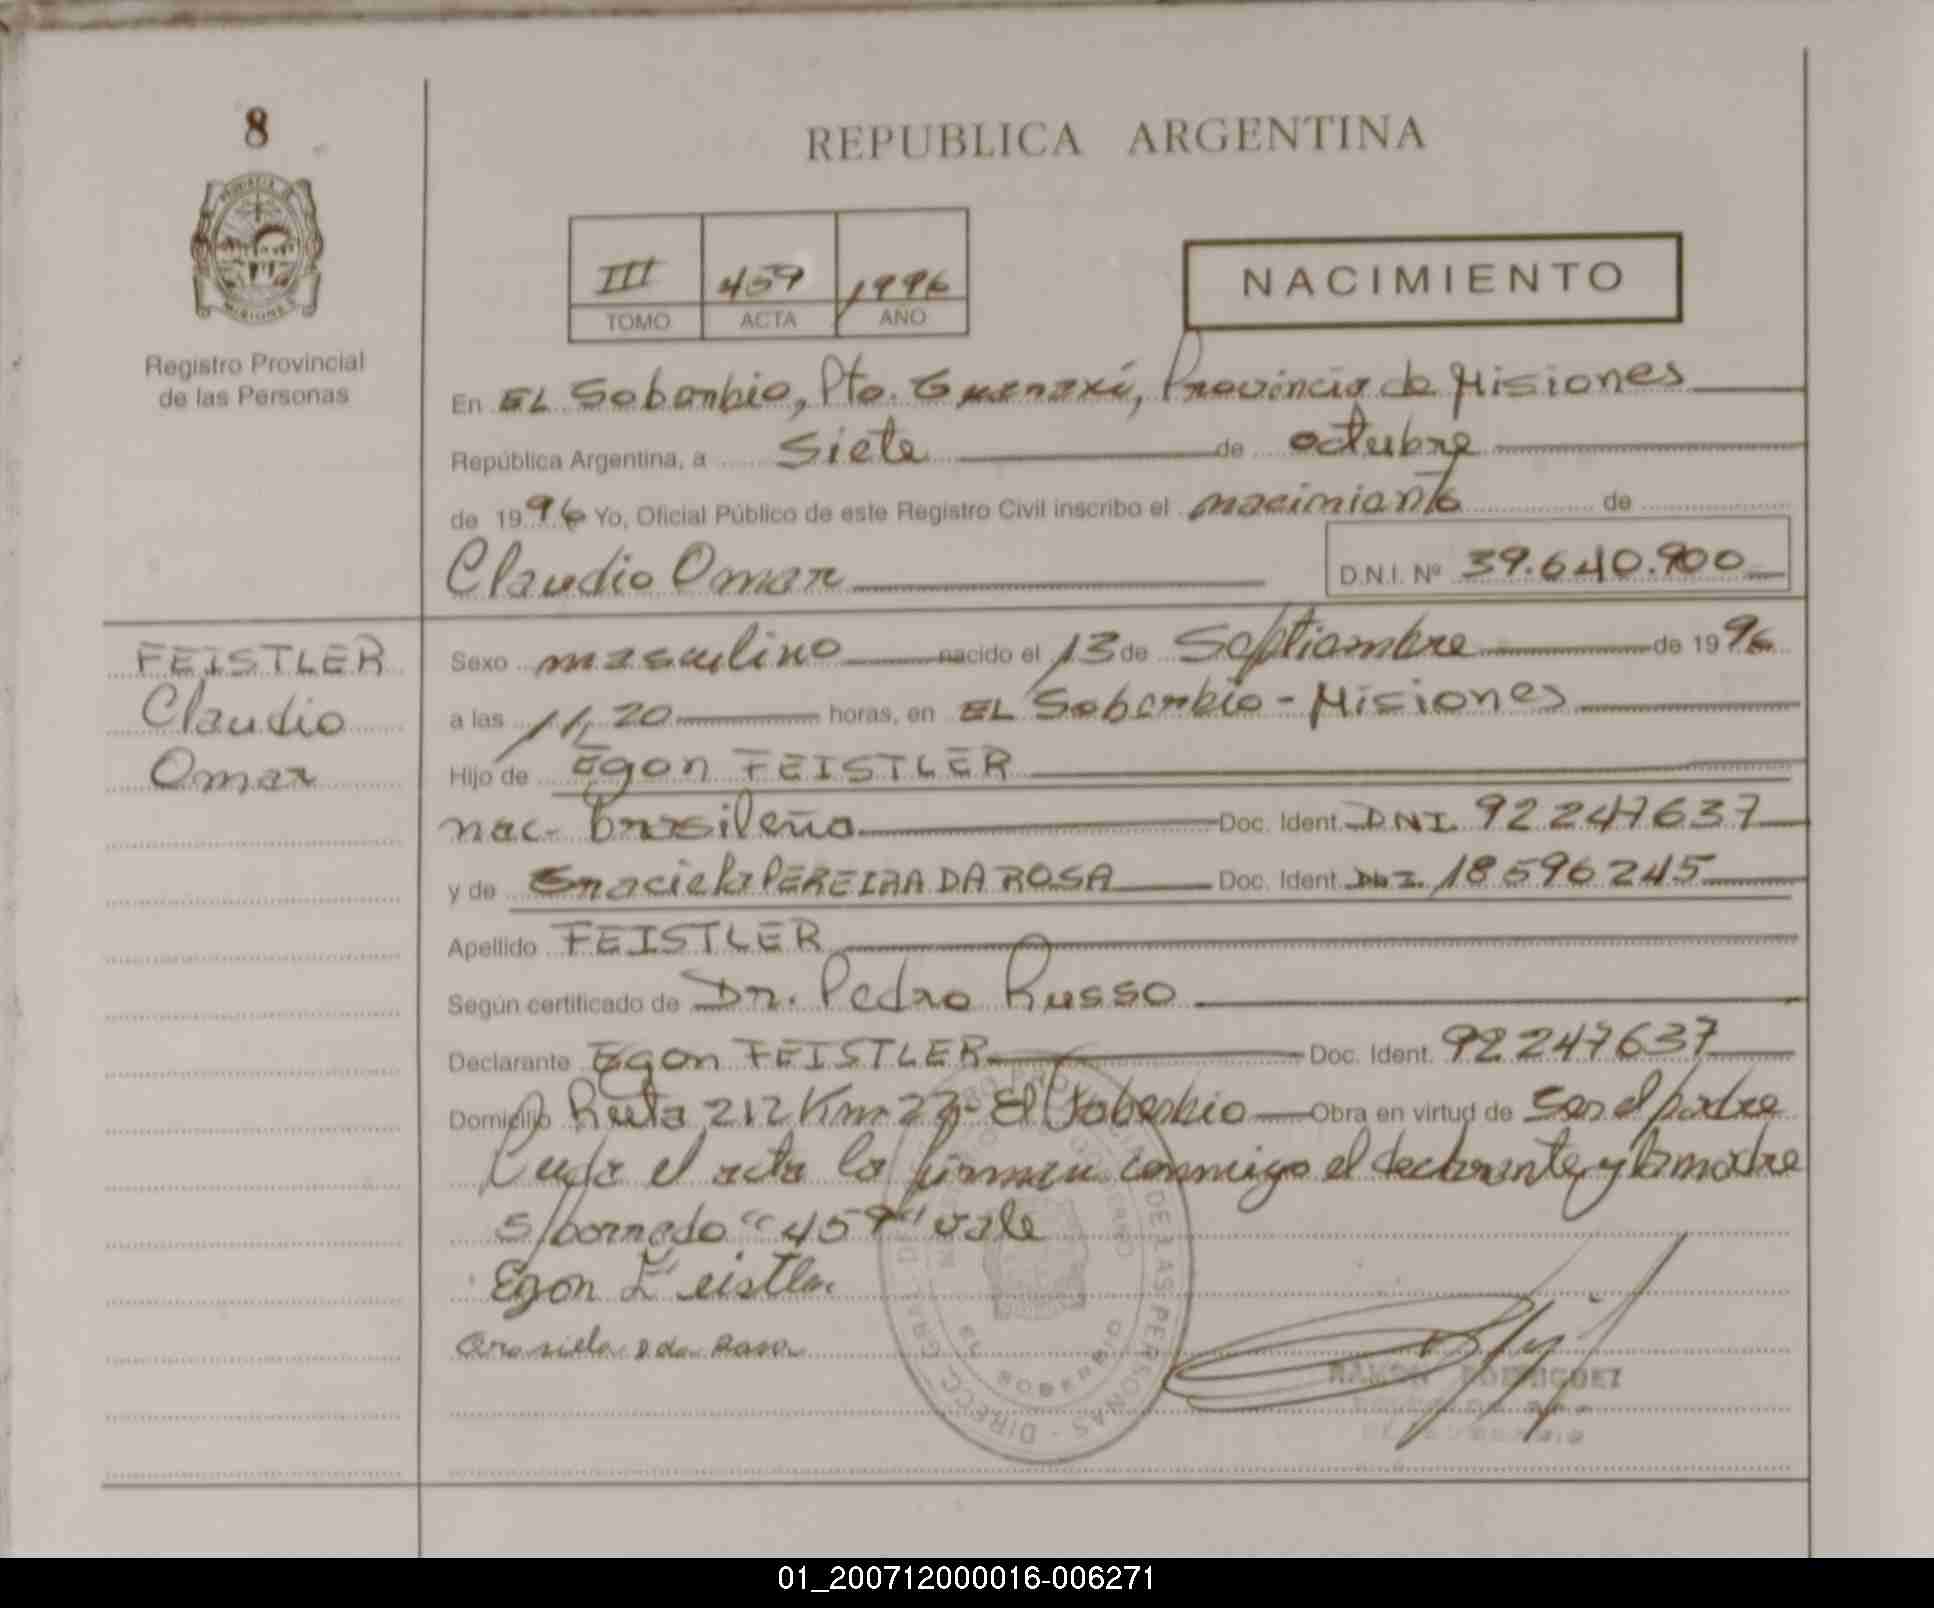 8
REPUBLICA ARGENTINA
III 459 1996
TOMO ACTA AÑO
NACIMIENTO
Registro Provincial
de las Personas
En EL Soberbio, Pto. Guaraní, Provincia de Misiones
República Argentina, a siete de octubre
de 1996 Yo, Oficial Público de este Registro Civil inscribo el nacimiento de
Claudio Omar D.N.I. Nº 39.640.900
FEISTLER
Claudio
Omar
Sexo masculino nacido el 13 de Septiembre de 1996
a las 11,20 horas, en EL Soberbio - Misiones
Hijo de Egon FEISTLER
nac. brasileña Doc. Ident. DNI 92247637
y de Graciela PEREIRA DA ROSA Doc. Ident. DNI. 18596245
Apellido FEISTLER
Según certificado de Dr. Pedro Russo
Declarante Egon FEISTLER Doc. Ident. 92247637
Domicilio Ruta 212 Km 27 - El Soberbio Obra en virtud de Ser el padre
Leída el acta la firman conmigo el declarante y la madre
S/borrado "459" vale
Egon Feistler
Graciela P da Rosa
DE LAS PERSONAS - DIRECC. GRAL. D
EL SOBERBIO
RAMON RODRIGUEZ
01_200712000016-006271